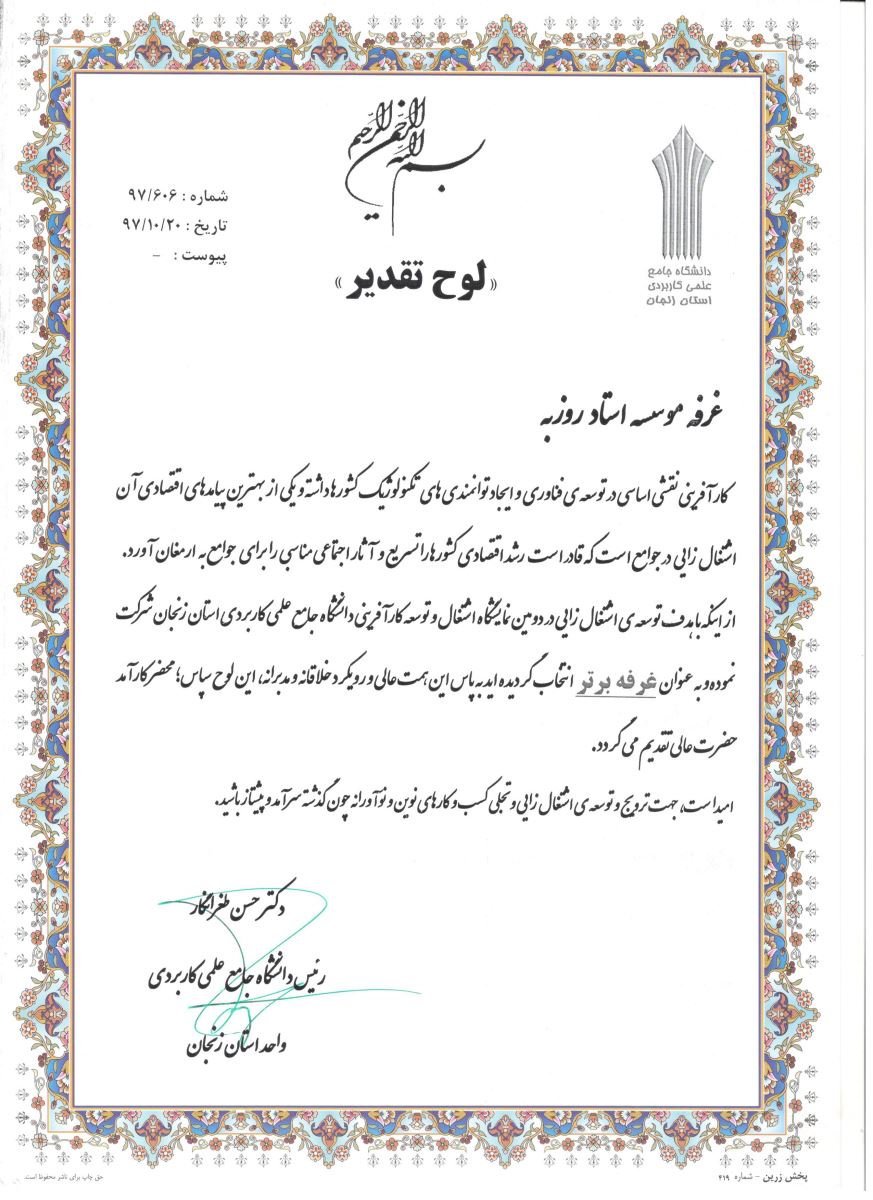 بسم الله الرحمن الرحیم
دانشگاه جامع
علمی کاربردی
استان زنجان
شماره : ۹۷/۶۰۶
تاریخ : ۹۷/۱۰/۲۰
پیوست : -
«لوح تقدیر»
غرفه موسسه استاد روزبه
کارآفرینی نقشی اساسی در توسعه ی فناوری و ایجاد توانمندی های تکنولوژیک کشورها داشته و یکی از بهترین پیامدهای اقتصادی آن
اشتغال زایی در جوامع است که قادر است رشد اقتصادی کشورها را تسریع و آثار اجتماعی مناسبی را برای جوامع به ارمغان آورد.
از اینکه با هدف توسعه ی اشتغال زایی در دومین نمایشگاه اشتغال و توسعه کارآفرینی دانشگاه جامع علمی کاربردی استان زنجان شرکت
نموده و به عنوان غرفه برتر انتخاب گردیده اید به پاس این همت عالی و رویکرد خلاقانه و مدبرانه، این لوح سپاس؛ محضر کارآمد
حضرت عالی تقدیم می گردد.
امید است، جهت ترویج و توسعه ی اشتغال زایی و تجلی کسب و کارهای نوین و نوآورانه چون گذشته سرآمد و پیشتاز باشید.
دکتر حسن طغرانگار
رئیس دانشگاه جامع علمی کاربردی
واحد استان زنجان
پخش زرین - شماره ۴۱۹
حق چاپ برای ناشر محفوظ است.